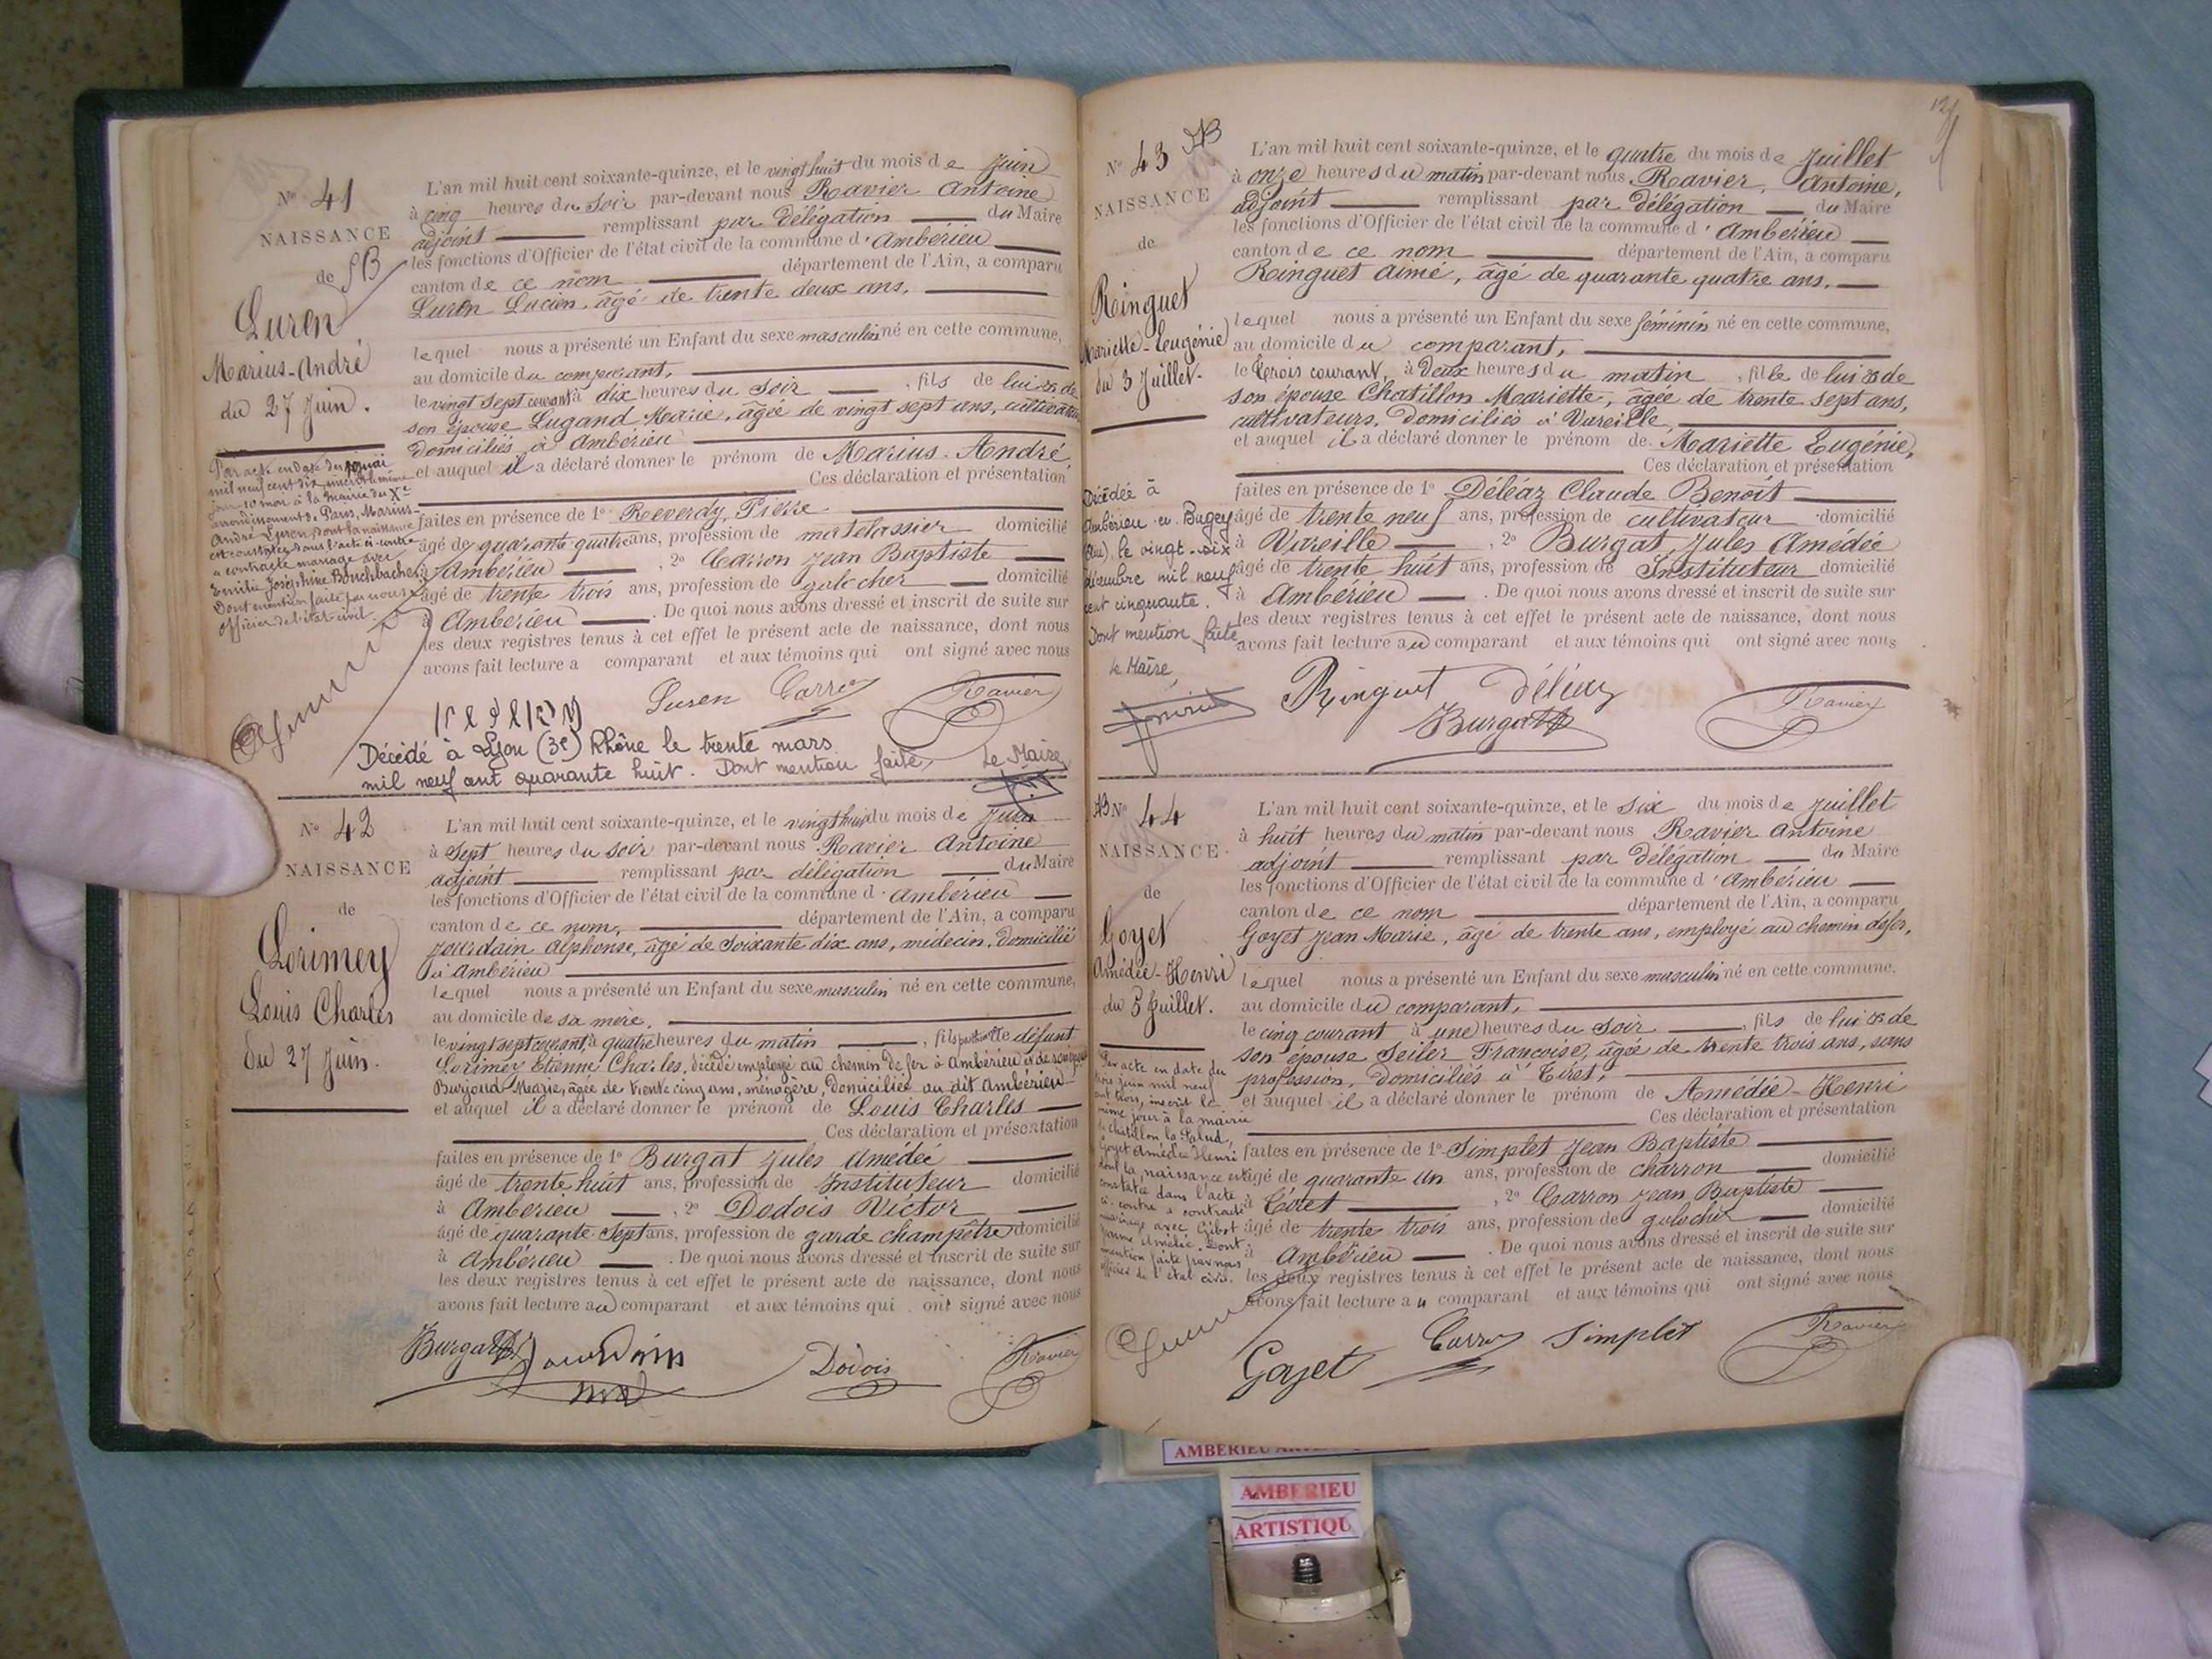 N° 41
NAISSANCE
de
Luren
Marius-André
du 27 Juin.
L'an mil huit cent soixante-quinze, et le vingt huit du mois de Juin
à cinq heures du Soir par-devant nous Ravier Antoine
adjoint remplissant par délégation du Maire
les fonctions d'Officier de l'état civil de la commune d'Ambérieu
canton de ce nom département de l'Ain, a comparu
Luren Lucien, âgé de trente deux ans,
lequel nous a présenté un Enfant du sexe masculin né en cette commune,
au domicile du comparant,
le vingt sept courant à dix heures du Soir, fils de lui & de
son épouse Lugand Marie, âgée de vingt sept ans,
domiciliés à Ambérieu
et auquel il a déclaré donner le prénom de Marius-André
Ces déclaration et présentation
faites en présence de 1° Reverdy, Pierre
âgé de quarante quatre ans, profession de matelassier domicilié
à Ambérieu, 2° Carron Jean Baptiste
âgé de trente trois ans, profession de galocher domicilié
à Ambérieu. De quoi nous avons dressé et inscrit de suite sur
les deux registres tenus à cet effet le présent acte de naissance, dont nous
avons fait lecture a comparant et aux témoins qui ont signé avec nous
Luren Carron Ravier
Par acte en date du
mil neuf cent dix, inscrit le même
jour à la Mairie du Xe
arrondissement de Paris, Marius-
André Luren dont la naissance
est constatée dans l'acte ci-contre
a contracté mariage avec
Emilie Joséphine
Dont mention faite par nous
officier de l'état civil.
Décédé à Lyon (3e) Rhône le trente mars
mil neuf cent quarante huit. Dont mention faite, Le Maire
N° 42
NAISSANCE
de
Lorimey
Louis Charles
du 27 Juin.
L'an mil huit cent soixante-quinze, et le vingt huit du mois de Juin
à Sept heures du Soir par-devant nous Ravier Antoine
adjoint remplissant par délégation du Maire
les fonctions d'Officier de l'état civil de la commune d'Ambérieu
canton de ce nom, département de l'Ain, a comparu
Jourdain Alphonse, âgé de Soixante dix ans, médecin, domicilié
à Ambérieu
lequel nous a présenté un Enfant du sexe masculin né en cette commune,
au domicile de sa mère,
le vingt sept courant, à quatre heures du matin, fils de défunt
Lorimey Etienne Charles, décédé employé au chemin de fer à Ambérieu et de son épouse
Burjoud Marie, âgée de trente cinq ans, ménagère, domiciliée au dit Ambérieu
et auquel il a déclaré donner le prénom de Louis Charles
Ces déclaration et présentation
faites en présence de 1° Burgat Jules Amédée
âgé de trente huit ans, profession de Instituteur domicilié
à Ambérieu, 2° Dodois Victor
âgé de quarante Sept ans, profession de garde champêtre domicilié
à Ambérieu. De quoi nous avons dressé et inscrit de suite sur
les deux registres tenus à cet effet le présent acte de naissance, dont nous
avons fait lecture au comparant et aux témoins qui ont signé avec nous
Burgat Jourdain Dodois Ravier
N° 43
NAISSANCE
de
Ringuet
Mariette-Eugénie
du 3 Juillet.
L'an mil huit cent soixante-quinze, et le quatre du mois de Juillet
à onze heures du matin par-devant nous Ravier, Antoine,
adjoint remplissant par délégation du Maire
les fonctions d'Officier de l'état civil de la commune d'Ambérieu
canton de ce nom département de l'Ain, a comparu
Ringuet Aimé, âgé de quarante quatre ans,
lequel nous a présenté un Enfant du sexe féminin né en cette commune,
au domicile du comparant,
le trois courant, à deux heures du matin, fille de lui & de
son épouse Chatillon Mariette, âgée de trente sept ans,
cultivateurs, domiciliés à Vareille
et auquel il a déclaré donner le prénom de Mariette Eugénie,
Ces déclaration et présentation
faites en présence de 1° Déléaz Claude Benoit
âgé de trente neuf ans, profession de cultivateur domicilié
à Vareille, 2° Burgat Jules Amédée
âgé de trente huit ans, profession de Instituteur domicilié
à Ambérieu. De quoi nous avons dressé et inscrit de suite sur
les deux registres tenus à cet effet le présent acte de naissance, dont nous
avons fait lecture au comparant et aux témoins qui ont signé avec nous
Ringuet Déléaz
Burgat Ravier
Décédée à
Ambérieu en Bugey
(Ain) le vingt-six
décembre mil neuf
cent cinquante.
Dont mention faite
le Maire,
N° 44
NAISSANCE
de
Goyet
Amédée-Henri
du 5 Juillet.
L'an mil huit cent soixante-quinze, et le six du mois de Juillet
à huit heures du matin par-devant nous Ravier Antoine
adjoint remplissant par délégation du Maire
les fonctions d'Officier de l'état civil de la commune d'Ambérieu
canton de ce nom département de l'Ain, a comparu
Goyet Jean Marie, âgé de trente ans, employé au chemin de fer,
lequel nous a présenté un Enfant du sexe masculin né en cette commune,
au domicile du comparant,
le cinq courant à une heures du Soir, fils de lui & de
son épouse Seiler Françoise, âgée de trente trois ans, sans
profession, domiciliés à Tiret,
et auquel il a déclaré donner le prénom de Amédée-Henri
Ces déclaration et présentation
faites en présence de 1° Simplet Jean Baptiste
âgé de quarante un ans, profession de charron domicilié
à Tiret, 2° Carron Jean Baptiste
âgé de trente trois ans, profession de galocher domicilié
à Ambérieu. De quoi nous avons dressé et inscrit de suite sur
les deux registres tenus à cet effet le présent acte de naissance, dont nous
avons fait lecture au comparant et aux témoins qui ont signé avec nous
Goyet Carron Simplet Ravier
Par acte en date du
trois juin mil neuf
cent trois, inscrit le
même jour à la mairie
de Châtillon la Palud,
Goyet Amédée Henri
dont la naissance est
constatée dans l'acte
ci-contre a contracté
mariage avec Gibot
Amélie. Dont
mention faite par nous
officier de l'état civil.
AMBERIEU
AMBERIEU
ARTISTIQU